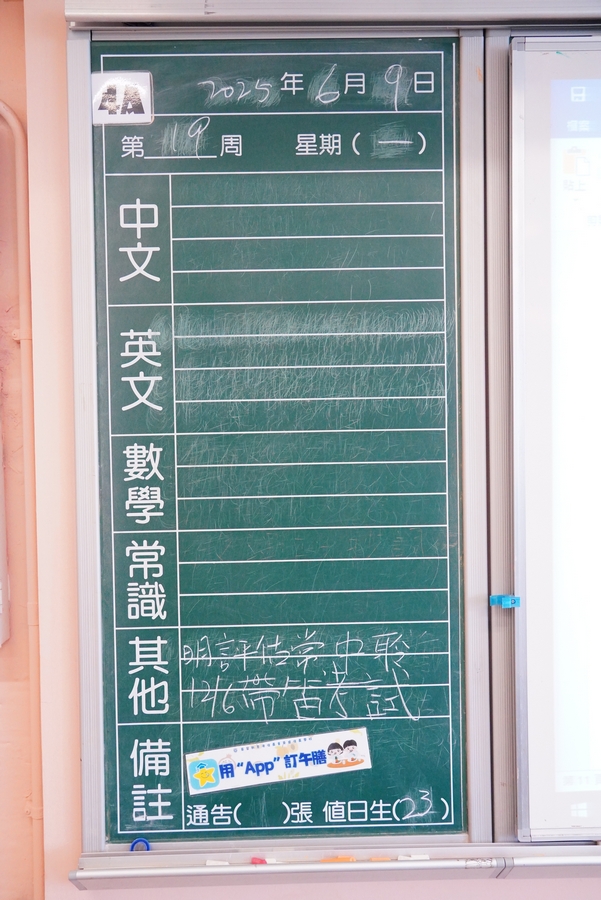 4A
2025年6月9日
第19周 星期(一)
中文
英文
數學
常識
其他
明評估常中聆
12/6帶笛考試
備註
用“App”訂午膳
通告( )張 值日生(23)